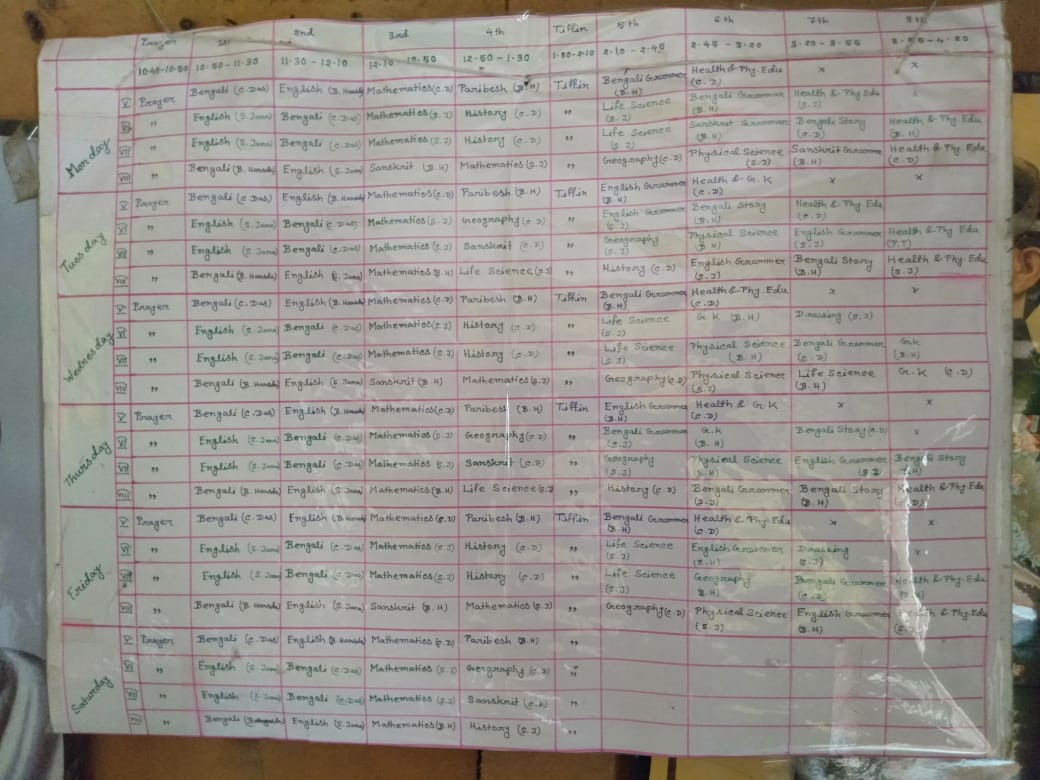 Prayer 1st 2nd 3rd 4th Tiffin 5th 6th 7th 8th
10.40-10.50 10.50-11.30 11.30-12.10 12.10-12.50 12.50-1.30 1.30-2.10 2.10-2.45 2.45-3.20 3.20-3.55 3.55-4.30
Monday
V Prayer Bengali (C.Das) English (B.Hansda) Mathematics (C.D) Paribesh (B.H) Tiffin Bengali Grammer (B.H) Health & Phy. Edu (C.D) x x
VI " English (S.Jana) Bengali (C.Das) Mathematics (S.J) History (C.D) " Life Science (S.J) Bengali Grammar (B.H) Health & Phy Edu (S.J) x
VII " English (S.Jana) Bengali (C.Das) Mathematics (S.J) History (C.D) " Life Science (S.J) Sanskrit Grammer (B.H) Bengali Story (C.D) Health & Phy. Edu (B.H)
VIII " Bengali (B.Hansda) English (S.Jana) Sanskrit (B.H) Mathematics (S.J) " Geography (C.D) Physical Science (S.J) Sanskrit Grammer (B.H) Health & Phy. Edu (C.D)
Tuesday
V Prayer Bengali (C.Das) English (B.Hansda) Mathematics (C.D) Paribesh (B.H) Tiffin English Grammer (B.H) Health & G.K (C.D) x x
VI " English (S.Jana) Bengali (C.Das) Mathematics (S.J) Geography (C.D) " English Grammer (S.J) Bengali Story (B.H) Health & Phy. Edu (C.D)
VII " English (S.Jana) Bengali (C.Das) Mathematics (S.J) Sanskrit (C.D) " Geography (S.J) Physical Science (B.H) English Grammer (S.J) Health & Phy Edu (P.T)
VIII " Bengali (B.Hansda) English (S.Jana) Mathematics (B.H) Life Science (S.J) " History (C.D) English Grammer (S.J) Bengali Story (B.H) Health & Phy. Edu (S.J)
Wednesday
V Prayer Bengali (C.Das) English (B.Hansda) Mathematics (C.D) Paribesh (B.H) Tiffin Bengali Grammer (B.H) Health & Phy. Edu (C.D) x x
VI " English (S.Jana) Bengali (C.Das) Mathematics (S.J) History (C.D) " Life Science (S.J) G.K (B.H) Drawing (S.J)
VII " English (S.Jana) Bengali (C.Das) Mathematics (S.J) History (C.D) " Life Science (S.J) Physical Science (B.H) Bengali Grammer (C.D) G.K (B.H)
VIII " Bengali (B.Hansda) English (S.Jana) Sanskrit (B.H) Mathematics (S.J) " Geography (C.D) Physical Science (S.J) Life Science (B.H) G.K (C.D)
Thursday
V Prayer Bengali (C.Das) English (B.Hansda) Mathematics (C.D) Paribesh (B.H) Tiffin English Grammer (B.H) Health & G.K (C.D) x x
VI " English (S.Jana) Bengali (C.Das) Mathematics (S.J) Geography (C.D) " Bengali Grammer (S.J) G.K (B.H) Bengali Story (C.D) x
VII " English (S.Jana) Bengali (C.Das) Mathematics (S.J) Sanskrit (C.D) " Geography (S.J) Physical Science (B.H) English Grammer (S.J) Bengali Story (B.H)
VIII " Bengali (B.Hansda) English (S.Jana) Mathematics (B.H) Life Science (S.J) " History (C.D) Bengali Grammer (S.J) Bengali Story (B.H) Health & Phy. Edu (C.D)
Friday
V Prayer Bengali (C.Das) English (B.Hansda) Mathematics (C.D) Paribesh (B.H) Tiffin Bengali Grammer (B.H) Health & Phy. Edu (C.D) x x
VI " English (S.Jana) Bengali (C.Das) Mathematics (S.J) History (C.D) " Life Science (S.J) English Grammer (B.H) Drawing (S.J) x
VII " English (S.Jana) Bengali (C.Das) Mathematics (S.J) History (C.D) " Life Science (S.J) Geography (B.H) Bengali Grammer (C.D) Health & Phy. Edu
VIII " Bengali (B.Hansda) English (S.Jana) Sanskrit (B.H) Mathematics (S.J) " Geography (C.D) Physical Science (S.J) English Grammer (B.H) Health & Phy. Edu
Saturday
V Prayer Bengali (C.Das) English (B.Hansda) Mathematics (C.D) Paribesh (B.H) "
VI " English (S.Jana) Bengali (C.Das) Mathematics (S.J) Geography (C.D) "
VII " English (S.Jana) Bengali (C.Das) Mathematics (S.J) Sanskrit (C.D) "
VIII " Bengali (B.Hansda) English (S.Jana) Mathematics (B.H) History (S.J) "